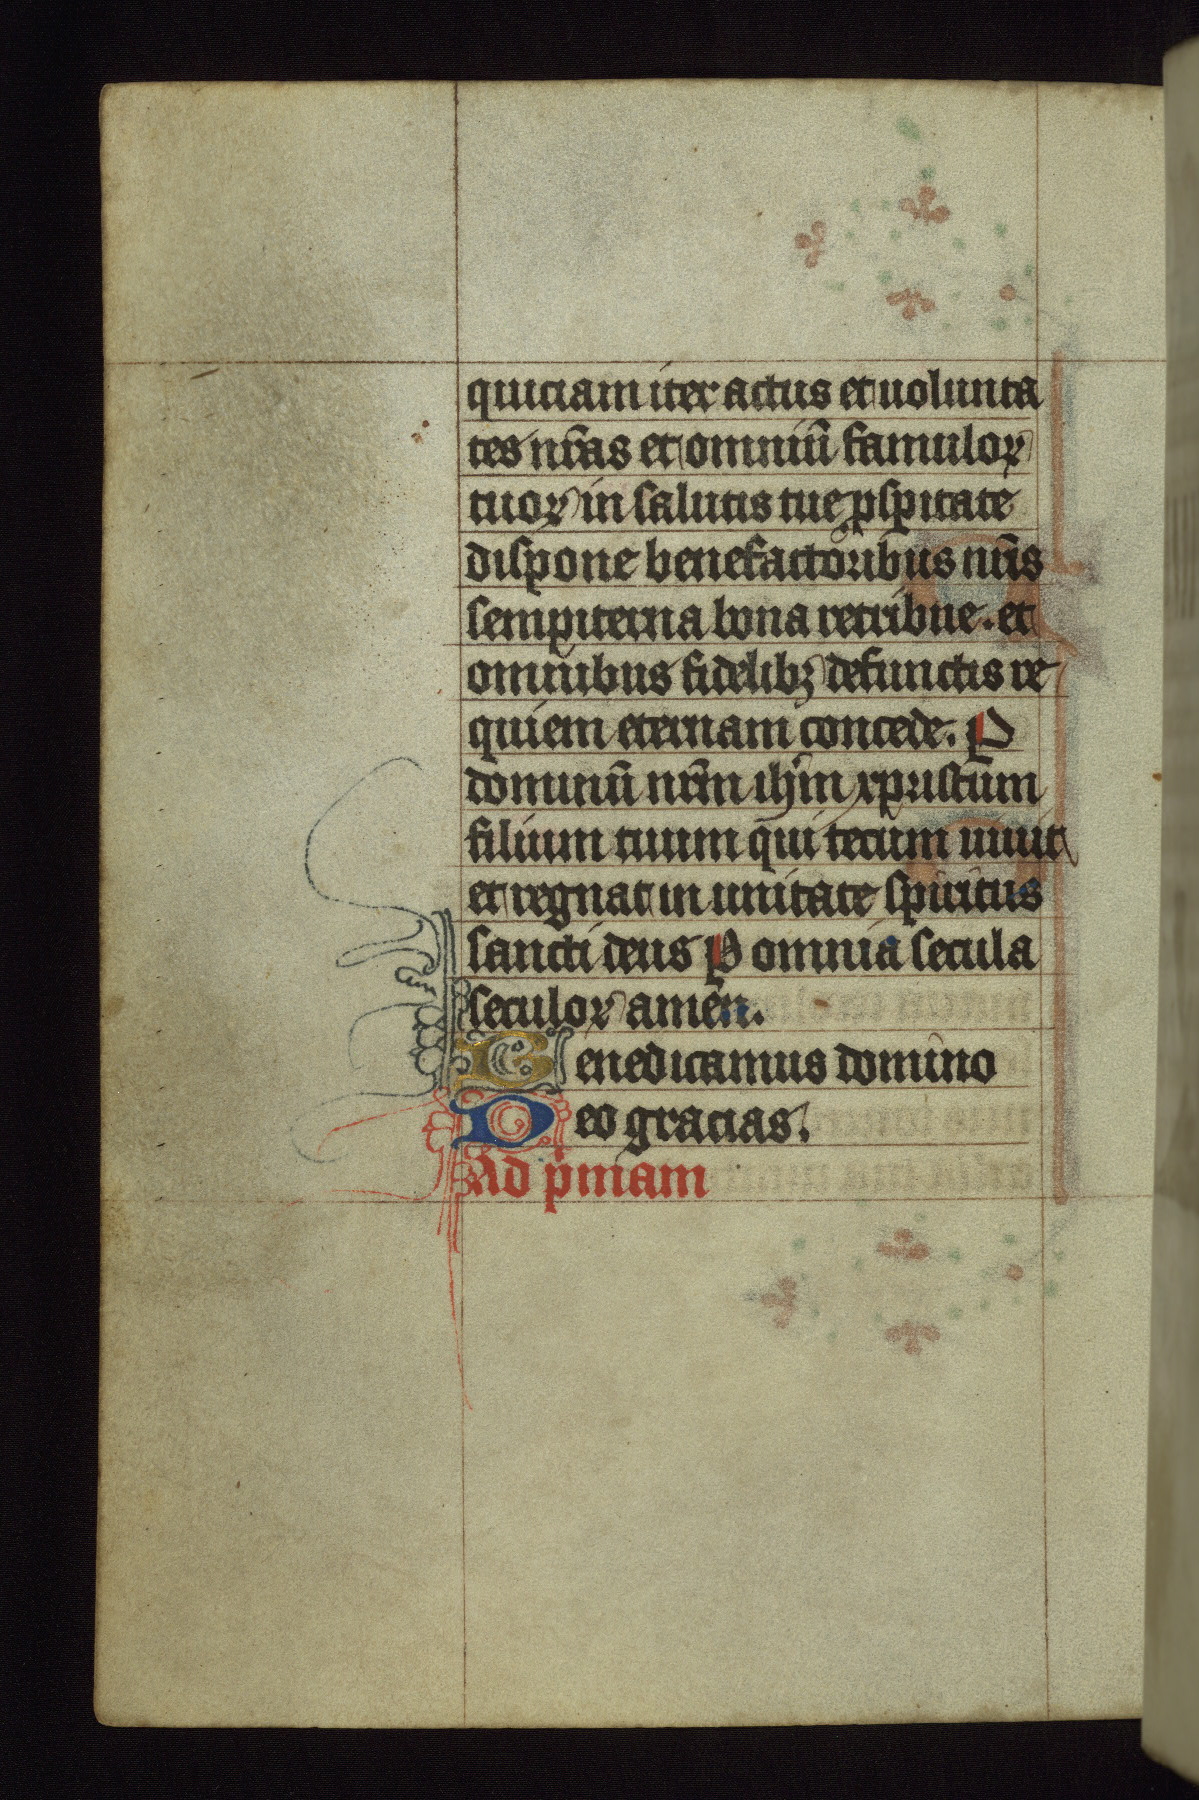 quiciam iter actus et uolunta
tes nr̄as et omniū famulorꝝ
tuorꝝ in salutis tue ꝓspitate
dispone benefactoribus nr̄is
sempiterna bona retribue. et
omnibus fidelibꝫ defunctis re
quiem eternam concede. P
dominū nr̄m ihm̄ xpristum
filium tuum qui tecum uiuit
et regnat in unitate spiritus
sancti deus P omnia secula
seculorꝝ amen.
Benedicamus domino
Deo gracias.
Ad pͥmam